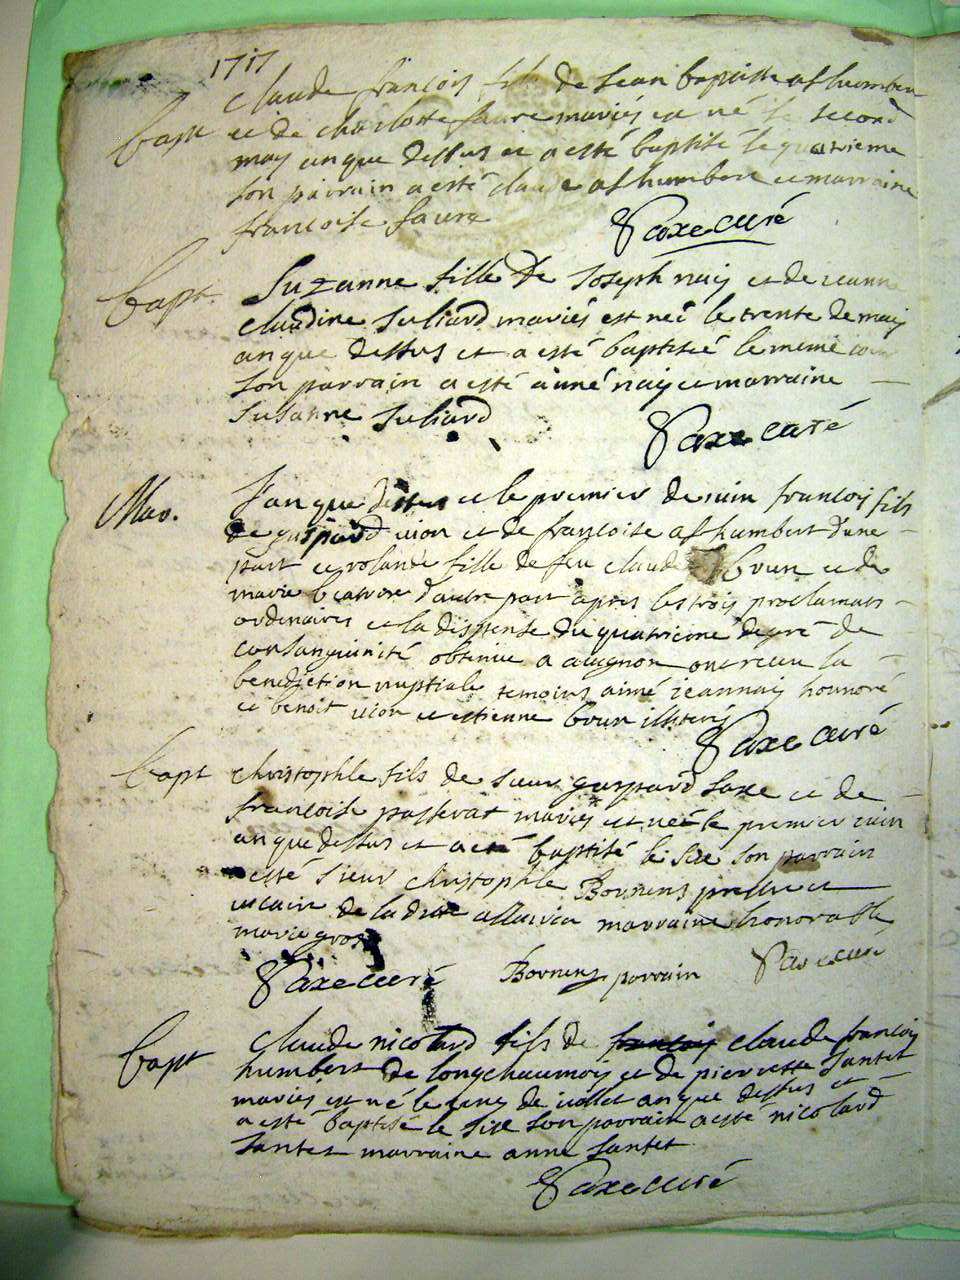 1717
Claude françois fils de Jean baptiste afhumbert
Bapt et de charlotte faure mariés est né le second
may an que dessus et a esté baptisé le quatrieme
son parrain a esté claude afhumbert et marraine
francoise faure
Saxe curé
Bapt. Suzanne fille de Joseph nay et de jeanne
claudine Juliard mariés est neé le trente de may
an que dessus et a esté baptiseé le meme jour
son parrain a esté aimé nay et marraine
Susanne Juliard
Saxe curé
Mar. L'an que dessus et le premier de iuin francois fils
de guspard uion et de francoise afhumbert d'une
part et rolande fille de feu claude brun et de
marie d'autre part apres les trois proclamats
ordinaires et la dispense du quatrieme degré de
consanguinité obtenue a auignon ont receu la
benediction nuptiale temoins aimé jeannay honnoré
et benoit uion et estienne brun illiterés
Saxe curé
Bapt christophle fils de sieur guspard saxe et de
francoise passerat mariés est neé le premier iuin
an que dessus et a eté baptisé le sixe son parrain
a esté sieur christophle Bornens prestre et
uicaire de la ditte marraine honorable
marie gros
Saxe curé Bornens parrain Saxe curé
Bapt Claude nicolard fils de francois claude francois
humbert de longchaumois et de pierrette santet
mariés est né le cinq de iuillet an que dessus et
a esté baptisé le sixe son parrain a esté nicolard
santet marraine anne santet
Saxe curé